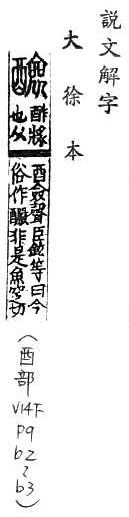 說文解字
大徐本
醶酢漿也从
酉僉聲臣鉉等曰今
俗作釅非是魚窆切
（酉部V14下p9b2~b3）